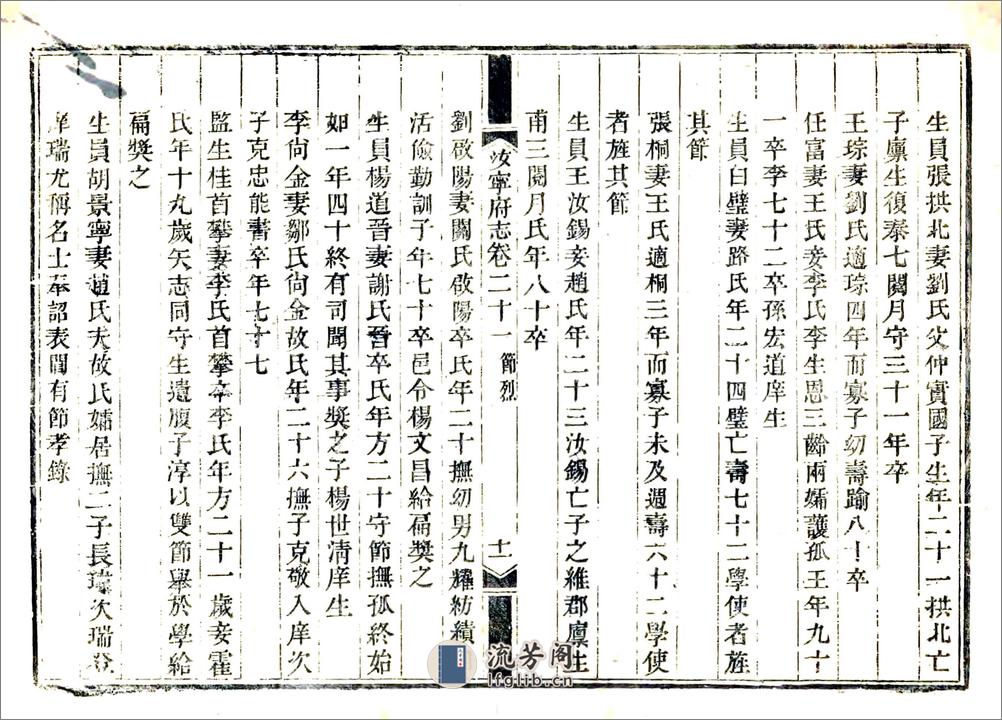 生員張拱北妻劉氏父仲實國子生年二十一拱北亡
子廩生復泰七閱月守三十一年卒
王琮妻劉氏適琮四年而寡子幼壽踰八十卒
任富妻王氏妾李氏李生恩三齡兩孀護孤王年九十
一卒李七十二卒孫宏道庠生
生員白璧妻路氏年二十四璧亡壽七十二學使者旌
其節
張桐妻王氏適桐三年而寡子未及週壽六十二學使
者旌其節
生員王汝錫妾趙氏年二十三汝錫亡子之維郡廩生
甫三閱月氏年八十卒
汝寧府志卷二十一 節烈 十一
劉啟陽妻關氏啟陽卒氏年二十撫幼男九耀紡績
活儉勤訓子年七十卒邑令楊文昌給匾獎之
生員楊道晉妻謝氏晉卒氏年方二十守節撫孤終始
如一年四十終有司聞其事獎之子楊世清庠生
李尙金妻鄒氏尙金故氏年二十六撫子克敬入庠次
子克忠能書卒年七十七
監生桂首攀妻李氏首攀卒李氏年方二十一歲妾霍
氏年十九歲矢志同守生遺腹子淳以雙節舉於學給
匾獎之
生員胡景寧妻趙氏夫故氏孀居撫二子長瑋次瑞登
庠瑞尤稱名士奉詔表閭有節孝錄
流芳阁
lfglib.cn